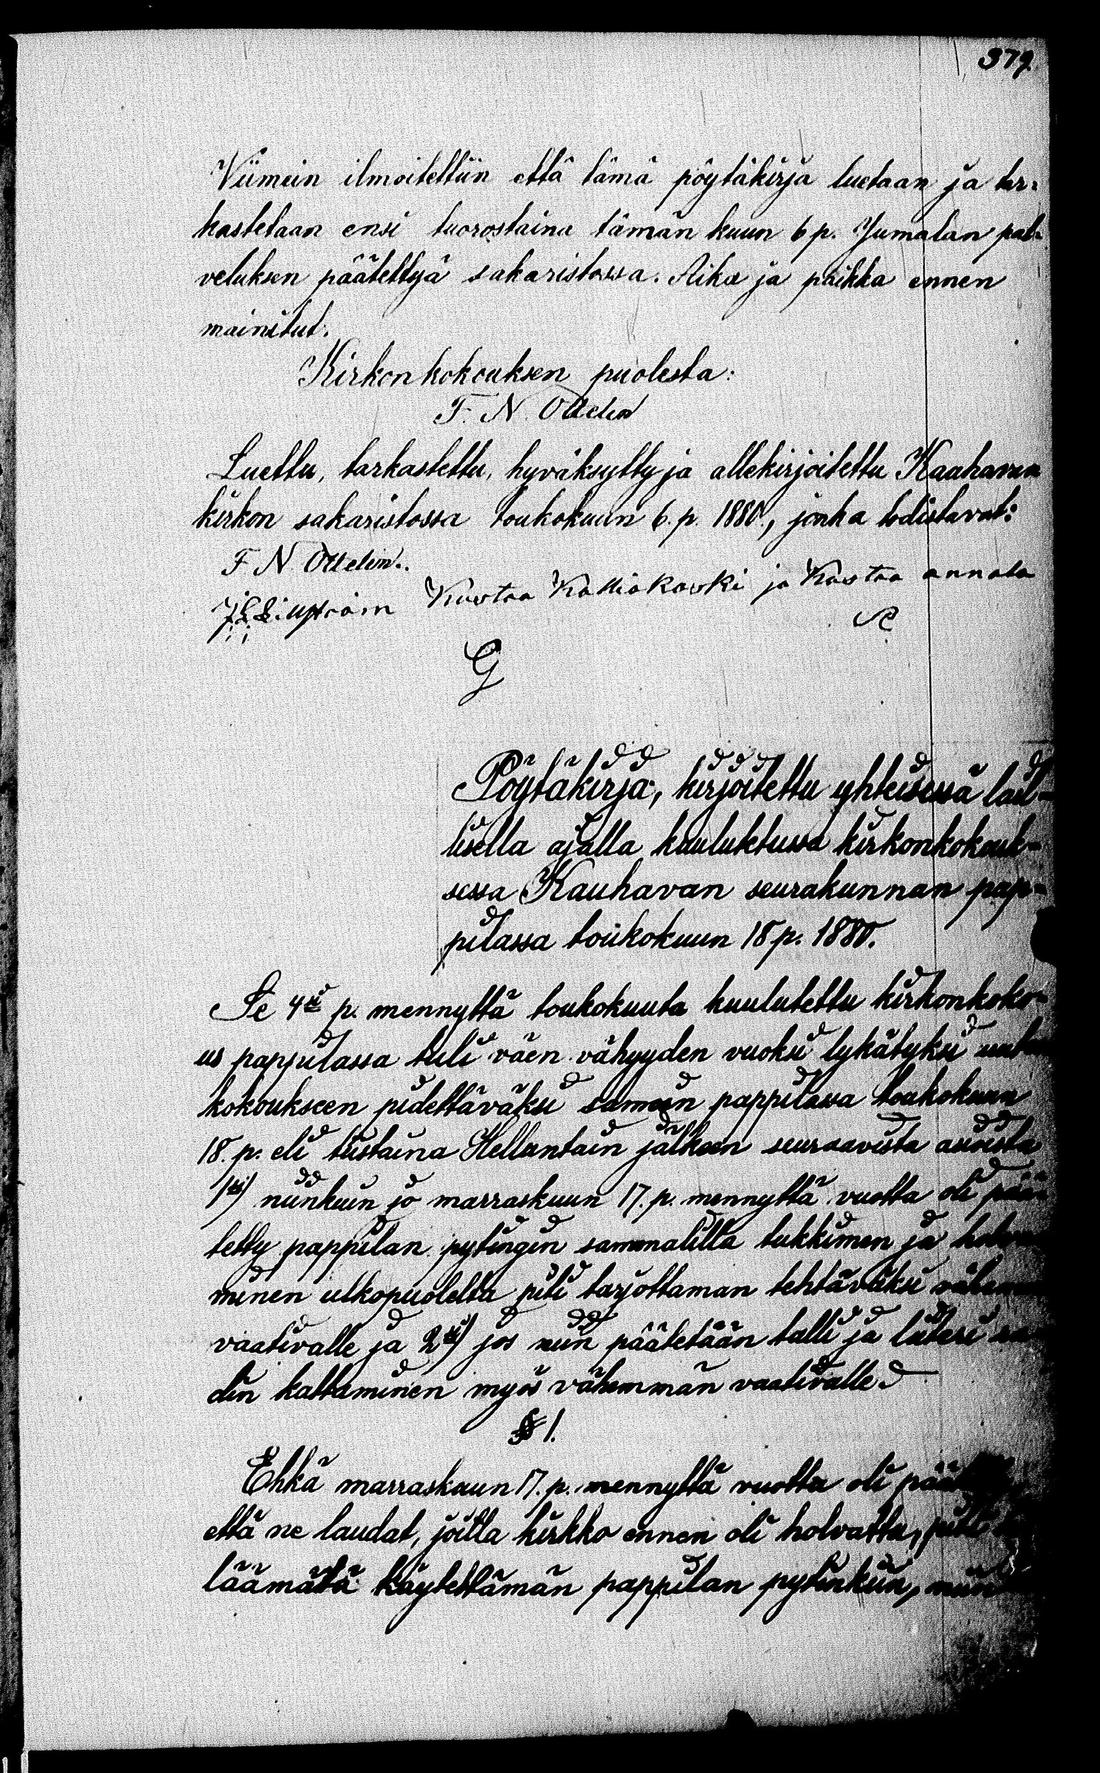 379.
Viimein ilmoitettiin että tämä pöytäkirja luetaan ja tar-
kastetaan ensi tuorostaina tämän kuun 6 p. Jumalan pal-
veluksen päätettyä sakaristossa. Aika ja paikka ennen
mainitut.
Kirkonkokouksen puolesta:
F. N. Ottelin
Luettu, tarkastettu, hyväksytty ja allekirjoitettu Kauhavan
kirkon sakaristossa toukokuun 6. p. 1880, jonka todistavat:
F N Ottelin.
Kustaa Kalliokoski ja Kustaa annala
G
Pöytäkirja, kirjoitettu yhteisessä lail-
lisella ajalla kuulutetussa kirkonkokouk-
sessa Kauhavan seurakunnan pap-
pilassa toukokuun 18 p. 1880.
Se 4tä p. mennyttä toukokuuta kuulutettu kirkonkoko-
us pappilassa tuli väen vähyyden vuoksi lykätyksi
kokoukseen pidettäväksi samoin pappilassa toukokuun
18. p. eli tiistaina Hellantain jälkeen seuraavista asioista
1ksi) niinkuin jo marraskuun 17. p. mennyttä vuotta oli pää-
tetty pappilan pytingin sammalilla tukkimen ja
minen ulkopuolelta piti tarjottaman tehtäväksi
vaativalle ja 2ksi) jos niin päätetään talli ja liiteri
din kattaminen myös vähemmän vaativalle.
§ 1.
Ehkä marraskuun 17. p. mennyttä vuotta oli
että ne laudat, joilla kirkko ennen oli holvattu, piti
läämätä käytettämän pappilan pytinkiin, niin